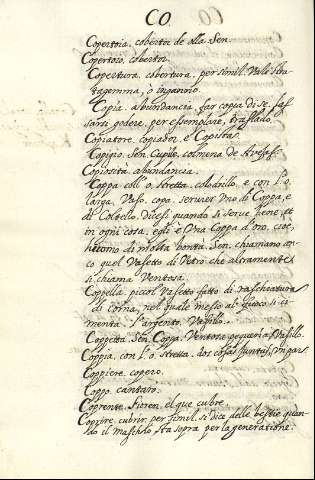 CO.
Copertoia. coberta de olla. Sen.
Copertoio. cobertor.
Copertura, cobertura. per simil. Vale Stra-
tagemma, ò inganno.
Copia. abundancia, far copia di se, las-
sarsi godere, per essemplare, traslado.
Copiatore. copiador, e Copista.
Copiglio. Sen. Cupile. colmena de Avejas.
Copiosità. abundancia.
Coppa. coll'o. stretta. colodrillo, e con l'o.
larga, Vaso. copa. servire Uno di Coppa, e
di Coltello. Dicesi quando si serve bene, et
in ogni cosa. egli è Una Coppa d'oro, cioè,
huomo di molta bontà. Sen. chiamano an-
co quel Vasetto di Vetro che altramente
si chiama Ventosa.
Coppella. piccol Vasetto fatto di raschiatura
di Corna, nel quale messo al fuoco si ci-
menta. l'argento.
Coppetta. Sen. Coppa. Ventosa pequeña
Coppia. con l'o. stretta. dos cosas juntas,
Coppiere. copero.
Coppo. cantaro.
Coprente. Fioren. el que cubre.
Coprire. cubrir. per simil. si dice delle bestie quan-
do il maschio sta sopra per la generatione.